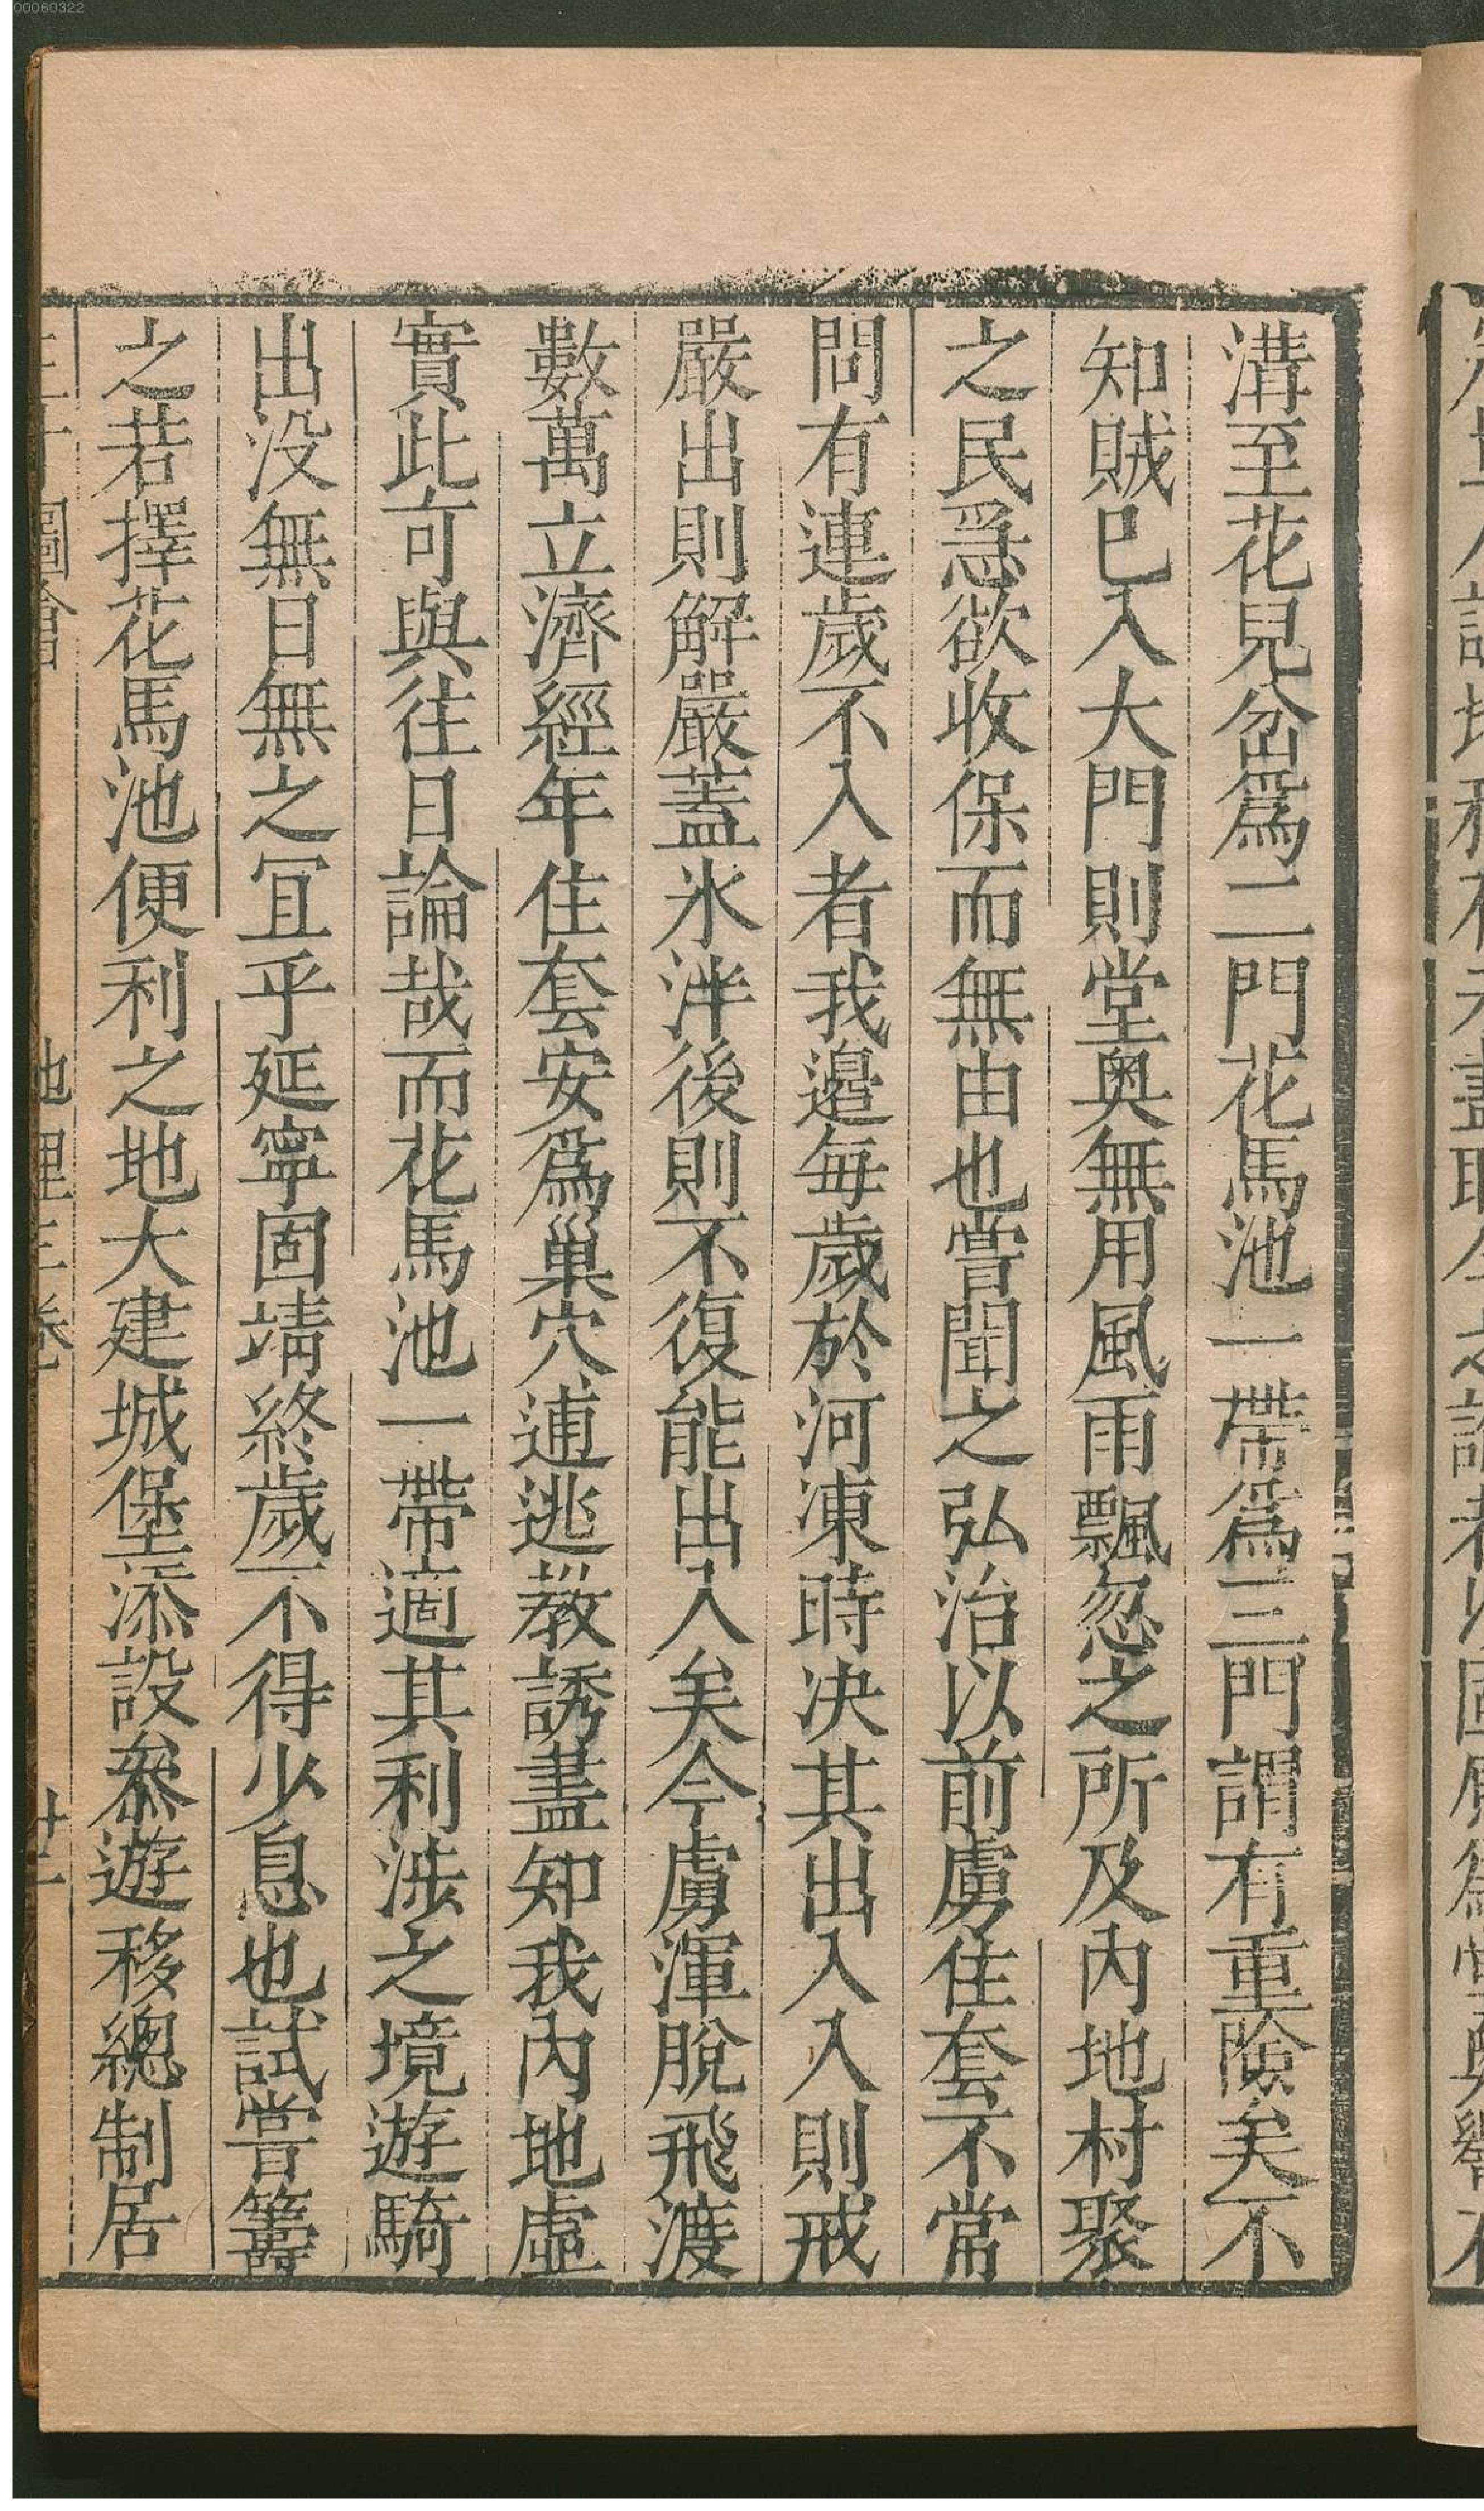 00060322
溝至花兒岔爲二門花馬池一帶爲三門謂有重險矣不
知賊巳入大門則堂奥無用風雨飄忽之所及内地村聚
之民急欲收保而無由也嘗聞之弘治以前虜住套不常
問有連歲不入者我邉每歲於河凍時决其出入入則戒
嚴出則解嚴蓋氷泮後則不復能出入矣今虜渾脫飛渡
數萬立濟經年住套安爲巢穴逋逃教誘盡知我内地虛
實此可與往日論哉而花馬池一帶適其利涉之境遊騎
出没無日無之冝乎延寧固靖終歲不得少息也試嘗籌
之若擇花馬池便利之地大建城堡添設叅遊移總制居
三才圖會 地理三卷 廿二